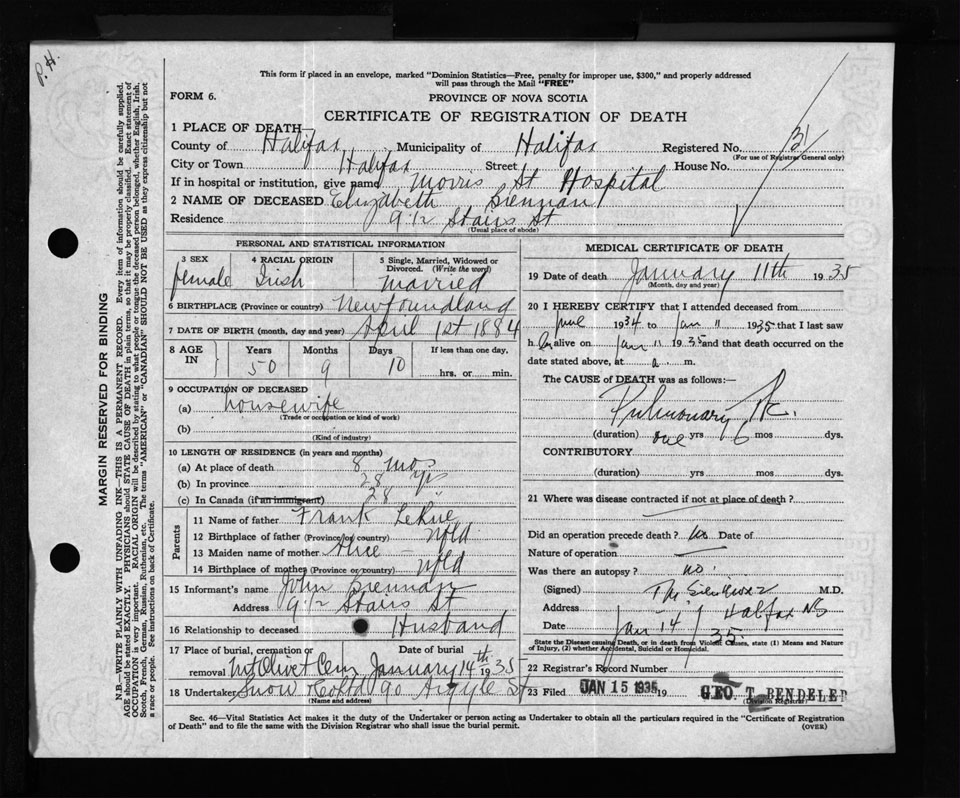 P. H.
This form if placed in an envelope, marked "Dominion Statistics—Free, penalty for improper use, $300," and properly addressed
will pass through the Mail "FREE"
FORM 6.
PROVINCE OF NOVA SCOTIA
CERTIFICATE OF REGISTRATION OF DEATH
1 PLACE OF DEATH—
County of Halifax Municipality of Halifax Registered No. 31
(For use of Registrar General only)
City or Town Halifax Street House No.
If in hospital or institution, give name Morris St Hospital
2 NAME OF DECEASED Elizabeth Brennan
Residence 9 1/2 Stairs St
(Usual place of abode)
PERSONAL AND STATISTICAL INFORMATION
3 SEX 4 RACIAL ORIGIN 5 Single, Married, Widowed or
Divorced. (Write the word)
female Irish Married
6 BIRTHPLACE (Province or country) Newfoundland
7 DATE OF BIRTH (month, day and year) April 1st 1884
8 AGE IN Years Months Days If less than one day,
50 9 10 hrs. or min.
9 OCCUPATION OF DECEASED
(a) housewife
(Trade or occupation or kind of work)
(b)
(Kind of industry)
10 LENGTH OF RESIDENCE (in years and months)
(a) At place of death 8 mos
(b) In province 28 yrs
(c) In Canada (if an immigrant) 28 "
Parents
11 Name of father Frank LeRue
12 Birthplace of father (Province or country) Nfld
13 Maiden name of mother Alice —
14 Birthplace of mother (Province or country) Nfld
15 Informant's name John Brennan
Address 9 1/2 Stairs St
16 Relationship to deceased Husband
17 Place of burial, cremation or removal Date of burial
Mt Olivet Cem January 14th 1935
18 Undertaker Snow Co Ltd 90 Argyle St
(Name and address)
MEDICAL CERTIFICATE OF DEATH
19 Date of death January 11th 1935
(Month, day and year)
20 I HEREBY CERTIFY that I attended deceased from
June 1934 to Jan 11 1935 that I last saw
h er alive on Jan 11 1935 and that death occurred on the
date stated above, at a. m.
The CAUSE of DEATH was as follows:—
Pulmonary Tbc.
(duration) one yrs 6 mos dys.
CONTRIBUTORY
(duration) yrs mos dys.
21 Where was disease contracted if not at place of death?
Did an operation precede death? no Date of
Nature of operation
Was there an autopsy? no.
(Signed) M.D.
Address Halifax NS
Date Jan 14 / 35.
State the Disease causing Death, or in death from Violent Causes, state (1) Means and Nature
of Injury, (2) whether Accidental, Suicidal or Homicidal.
22 Registrar's Record Number
23 Filed JAN 15 1935 19 GEO T. BENDELER
(Division Registrar)
Sec. 46—Vital Statistics Act makes it the duty of the Undertaker or person acting as Undertaker to obtain all the particulars required in the "Certificate of Registration
of Death" and to file the same with the Division Registrar who shall issue the burial permit.
(OVER)
MARGIN RESERVED FOR BINDING
N.B.—WRITE PLAINLY WITH UNFADING INK—THIS IS A PERMANENT RECORD. Every item of information should be carefully supplied.
AGE should be stated EXACTLY. PHYSICIANS should STATE CAUSE OF DEATH in plain terms, so that it may be properly classified. Exact statement of
OCCUPATION is very important. RACIAL ORIGIN will be described by stating to what people or tongue the deceased person belonged, whether English, Irish,
Scotch, French, German, Russian, Ruthenian, etc. The terms "AMERICAN" or "CANADIAN" SHOULD NOT BE USED as they express citizenship but not
a race or people. See instructions on back of Certificate.